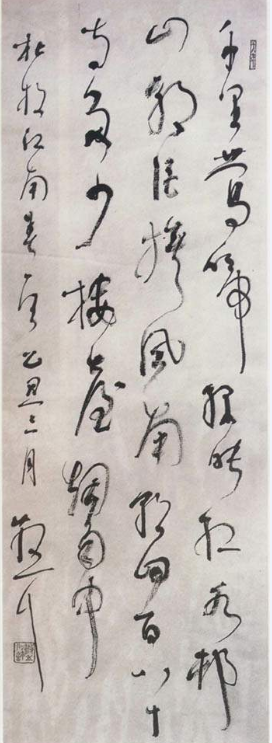 千里鶯啼綠映紅水村
山郭酒旗風南朝四百八十
寺多少樓臺烟雨中
杜牧江南春 乙丑三月 散耳